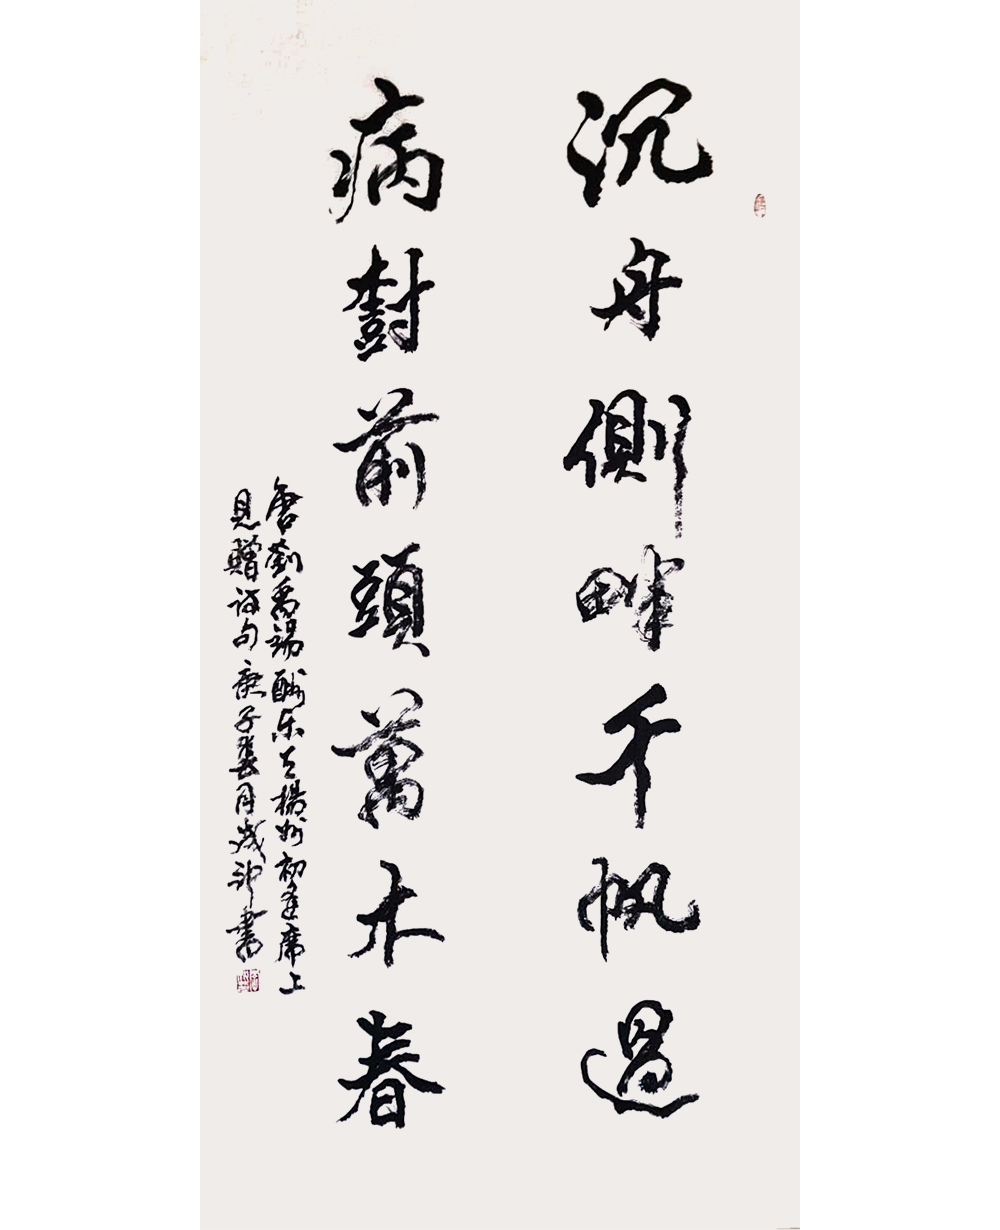 沉舟側畔千帆過
病對前頭萬木春
唐劉禹錫酬乐天揚州初逢席上
見贈诗句庚子冀月歲冲書